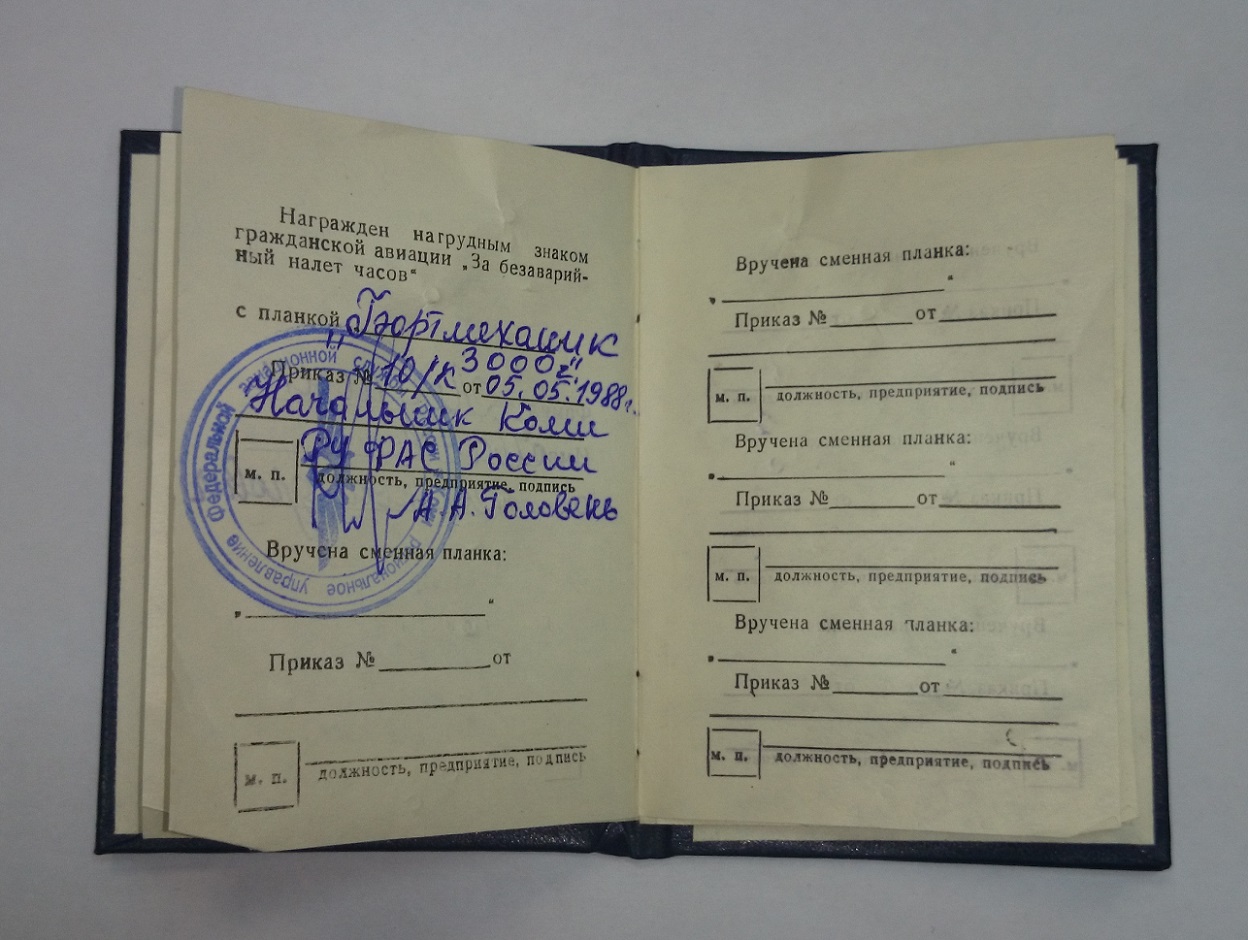 Награжден нагрудным знаком
гражданской авиации „За безаварий-
ный налет часов“
с планкой „Бортмеханик
3000ч“
Приказ № 10/к от 05.05.1988г.
Начальник Коми
РУ ФАС России
м. п.
должность, предприятие, подпись
А.А. Головень
Федеральной авиационной службы России
Коми региональное управление
Вручена сменная планка:
„ “
Приказ № от
м. п.
должность, предприятие, подпись
Вручена сменная планка:
„ “
Приказ № от
м. п.
должность, предприятие, подпись
Вручена сменная планка:
„ “
Приказ № от
м. п.
должность, предприятие, подпись
Вручена сменная планка:
„ “
Приказ № от
м. п.
должность, предприятие, подпись